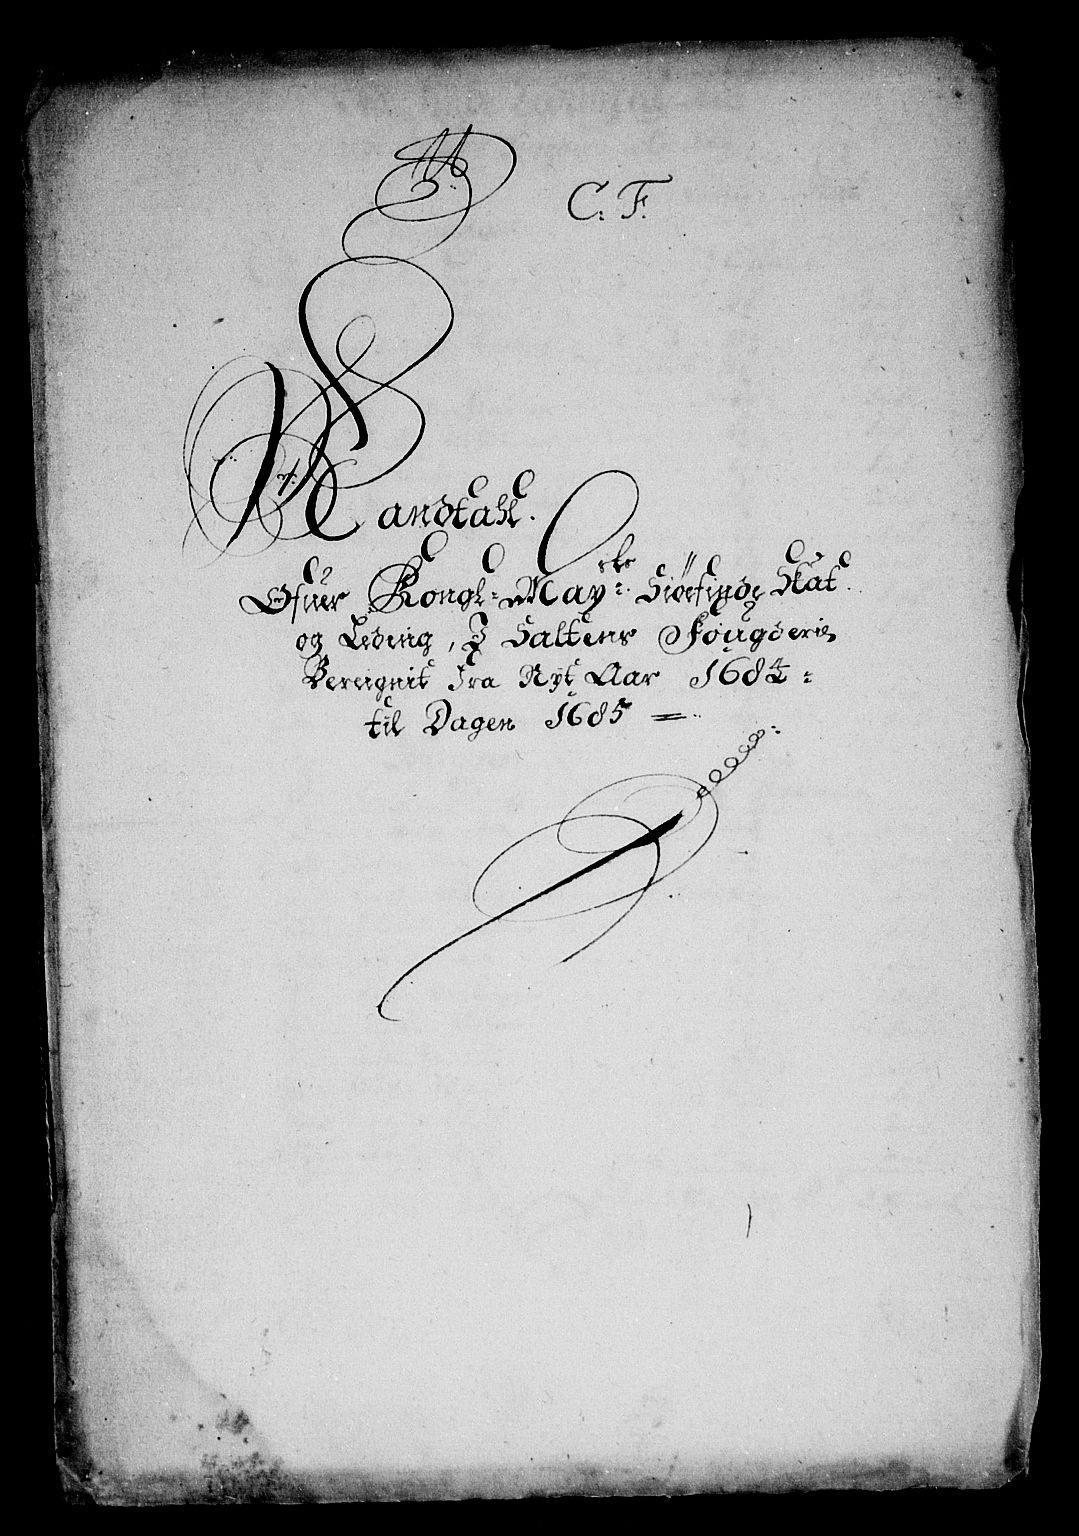 C: F.
Mandtahl.
Ofuer Kongl: May:ts Siøefinde Skat
og Leding, I Saltens Fougderie
Bereignit fra Nyt Aar 1684:
til Dagen 1685 =